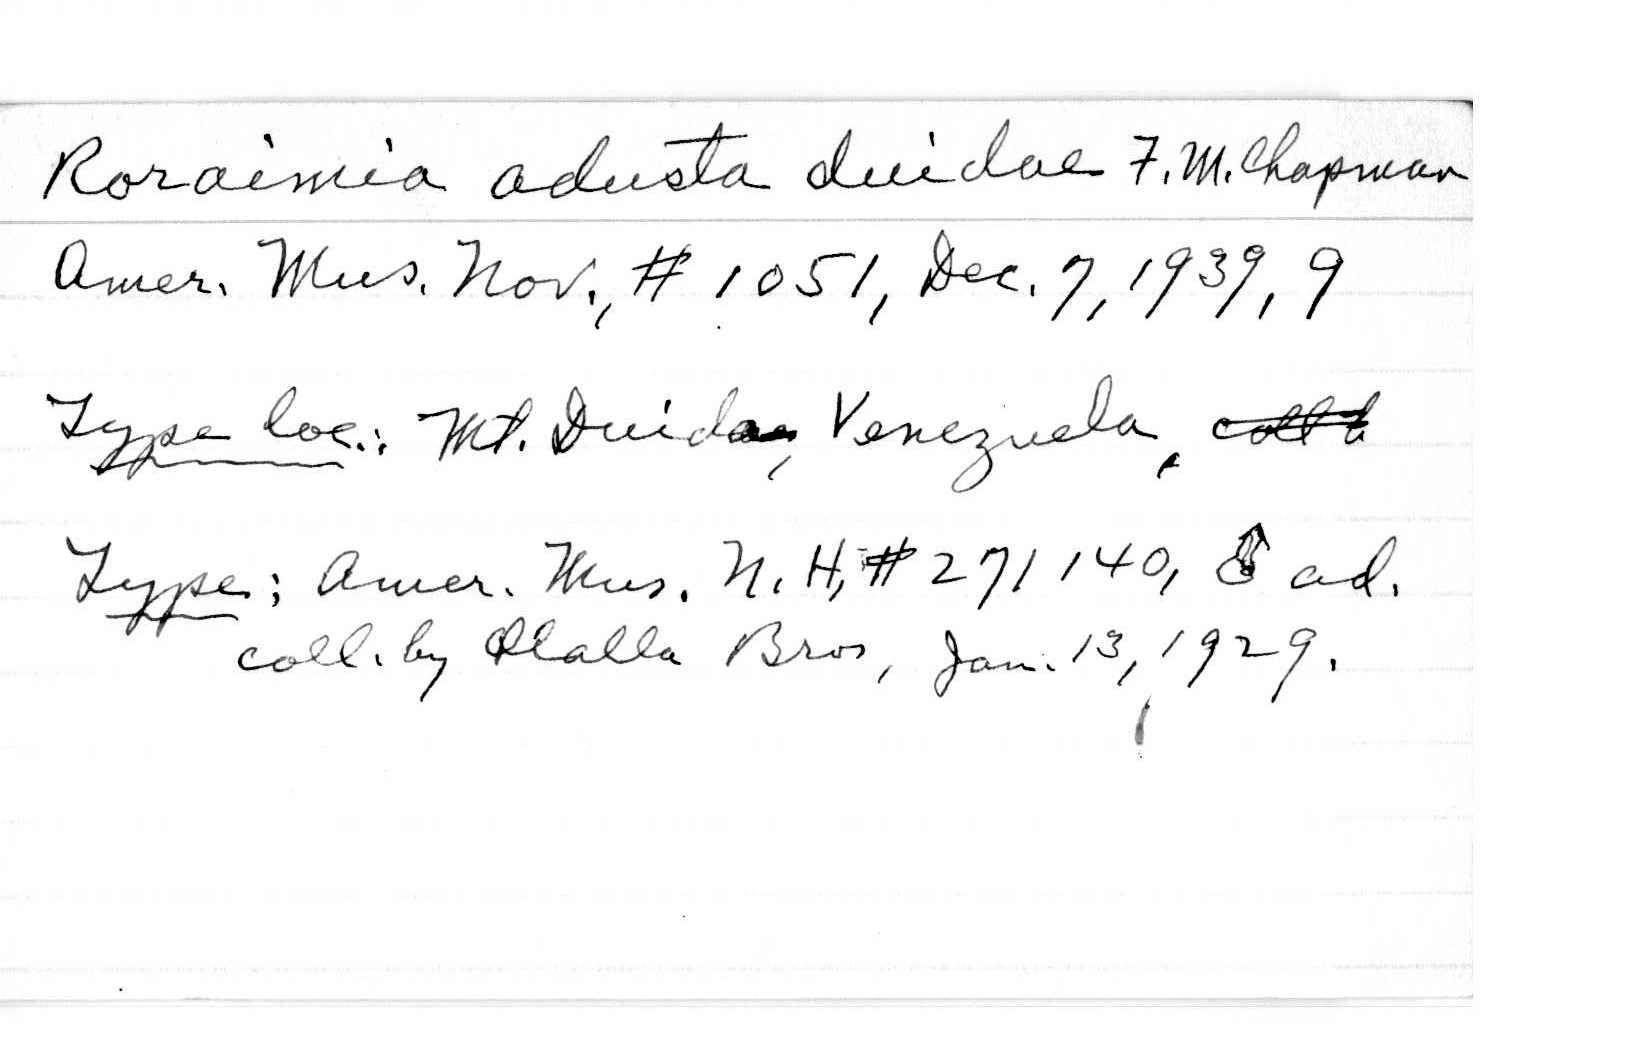 Roraimia adusta duidae F. M. Chapman
Amer. Mus. Nov., # 1051, Dec. 7, 1939, 9
Type loc.: Mt. Duida, Venezuela,
Type: Amer. Mus. N. H, # 271140, ♂ ad.
coll. by Olalla Bros, Jan. 13, 1929.